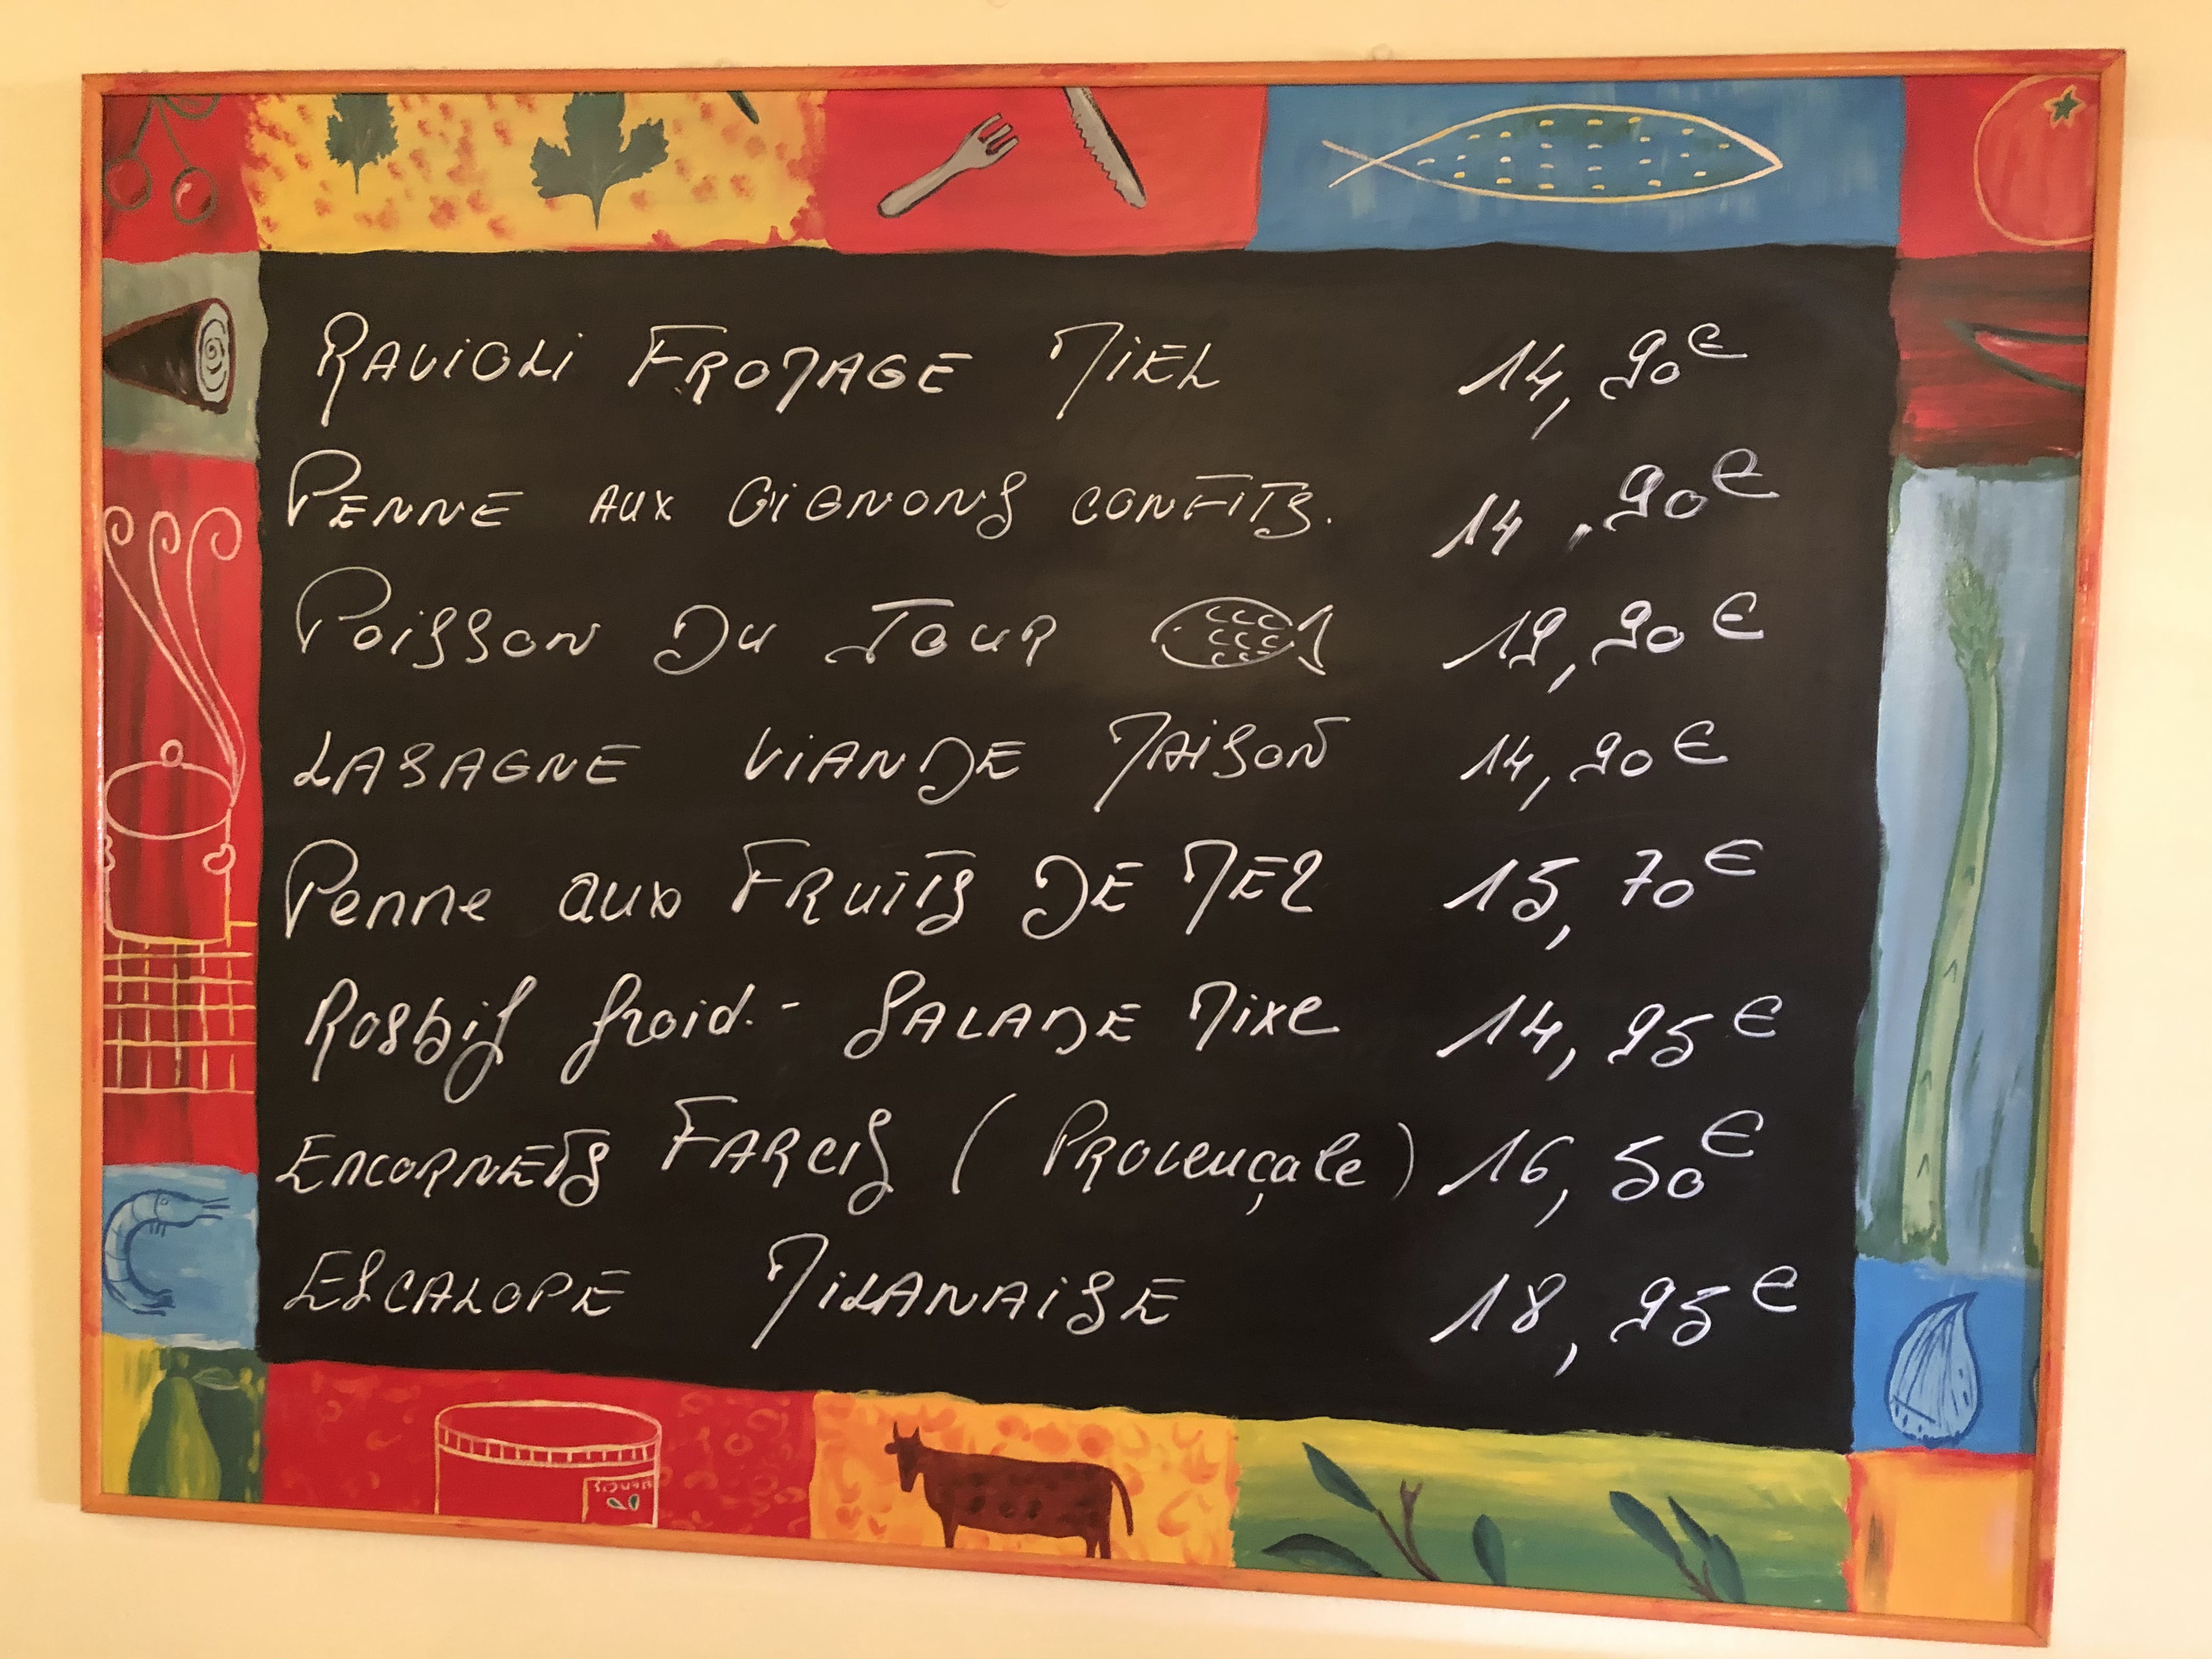 RAVIOLI FROMAGE MIEL 14,90€
PENNE AUX OIGNONS CONFITS. 14,90€
POISSON DU JOUR 19,90€
LASAGNE VIANDE MAISON 14,90€
Penne aux FRUITS DE MER 15,70€
Rosbif froid.- SALADE Mixe 14,95€
ENCORNETS FARCIS (PROVençale) 16,50€
ESCALOPE MILANAISE 18,95€